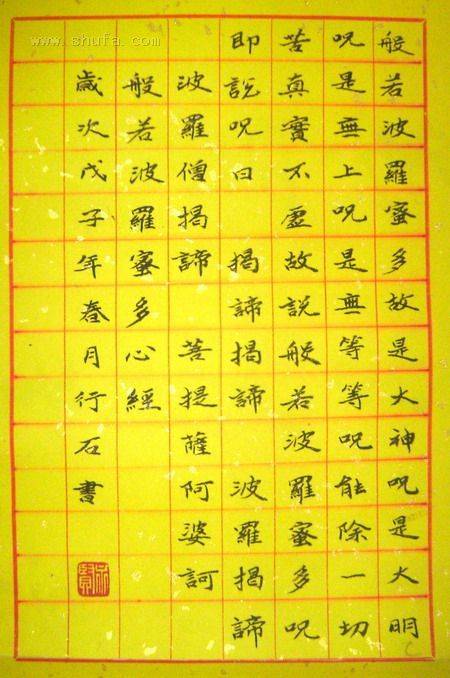 般若波羅蜜多故是大神呪是大明
呪是無上呪是無等等呪能除一切
苦真實不虛故說般若波羅蜜多呪
即說呪曰 揭諦揭諦 波羅揭諦
波羅僧揭諦 菩提薩阿婆訶
般若波羅蜜多心經
歲次戊子年春月行石書
www.shufa.com